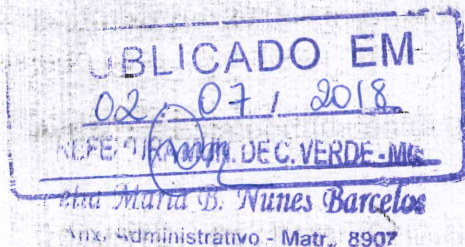 PUBLICADO EM
02 / 07 / 2018
MUN. DE C. VERDE - MG
Maria B. Nunes Barcelos
Aux. Administrativo - Matr. 8907